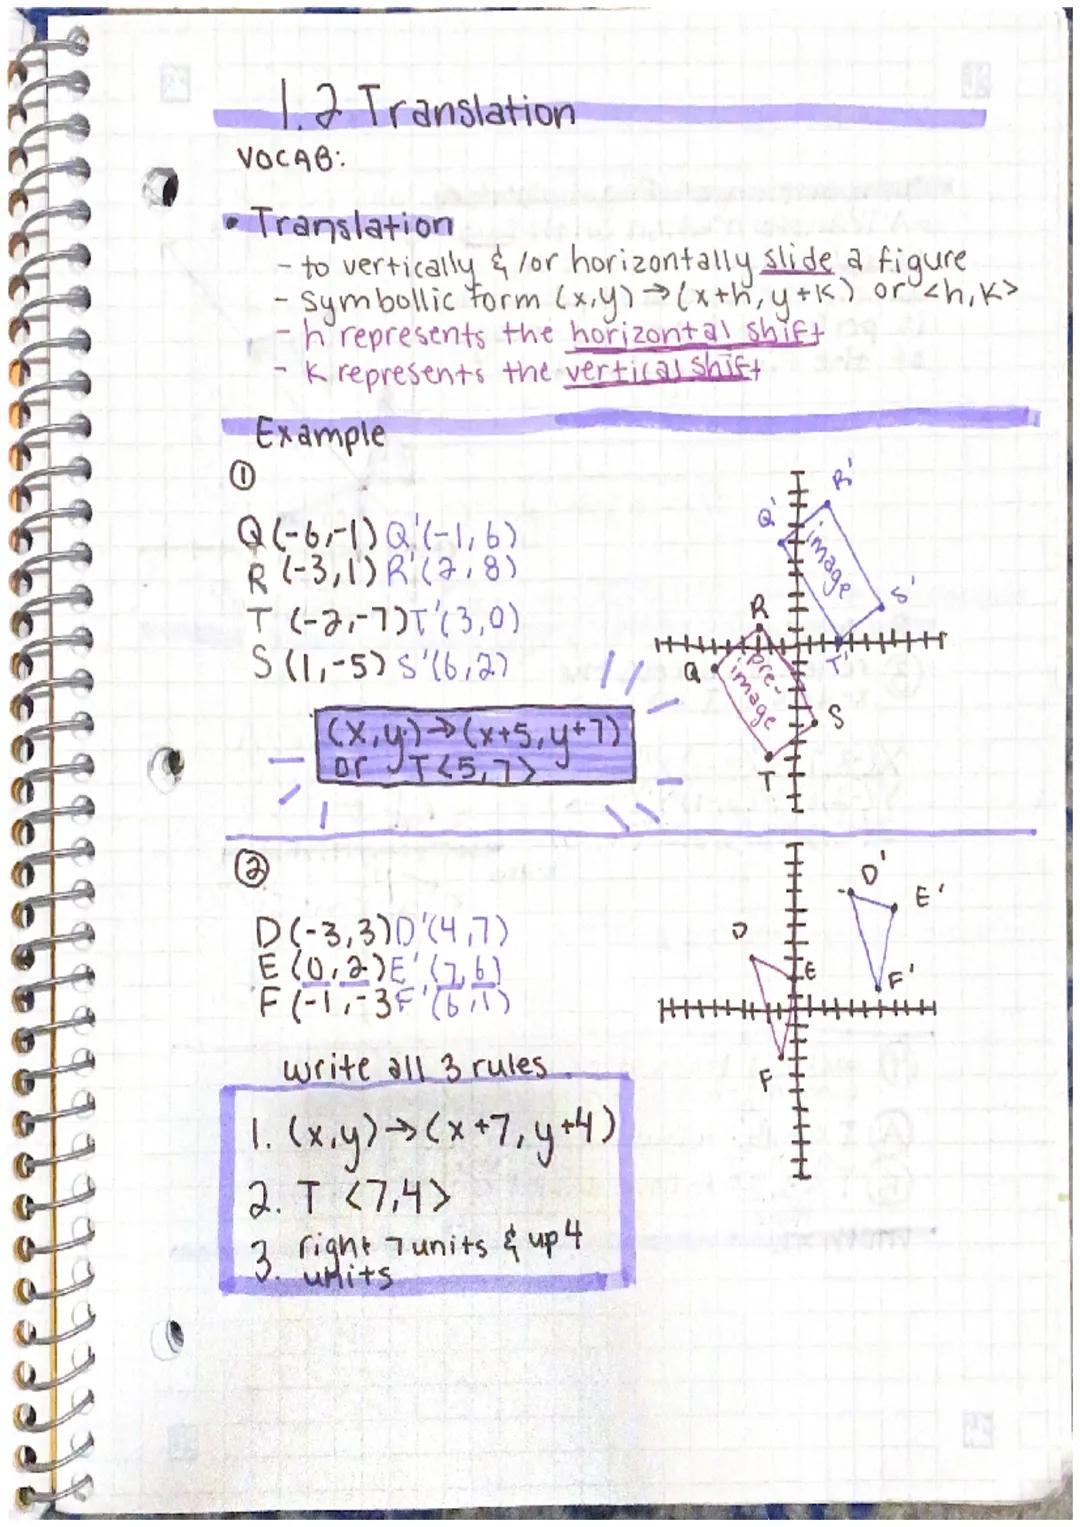 1.2 Translation
VOCAB:
• Translation
- to vertically & /or horizontally slide a figure
- symbollic form (x,y) → (x+h, y+k) or <h,k>
- h represents the horizontal shift
- k represents the vertical shift
Example
①
Q (-6,-1) Q'(-1,6)
R (-3,1) R'(2,8)
T (-2,-7) T'(3,0)
S (1,-5) S'(6,2)
(x,y) → (x+5, y+7)
or T<5,7>
R'
Q'
image
S'
R
T'
Q
pre-
image
S
T
②
D (-3,3) D'(4,7)
E (0,2) E'(7,6)
F (-1,-3 F'(6,1)
D'
E'
D
E
F'
F
write all 3 rules
1. (x,y) → (x+7, y+4)
2. T <7,4>
3. right 7 units & up 4
units